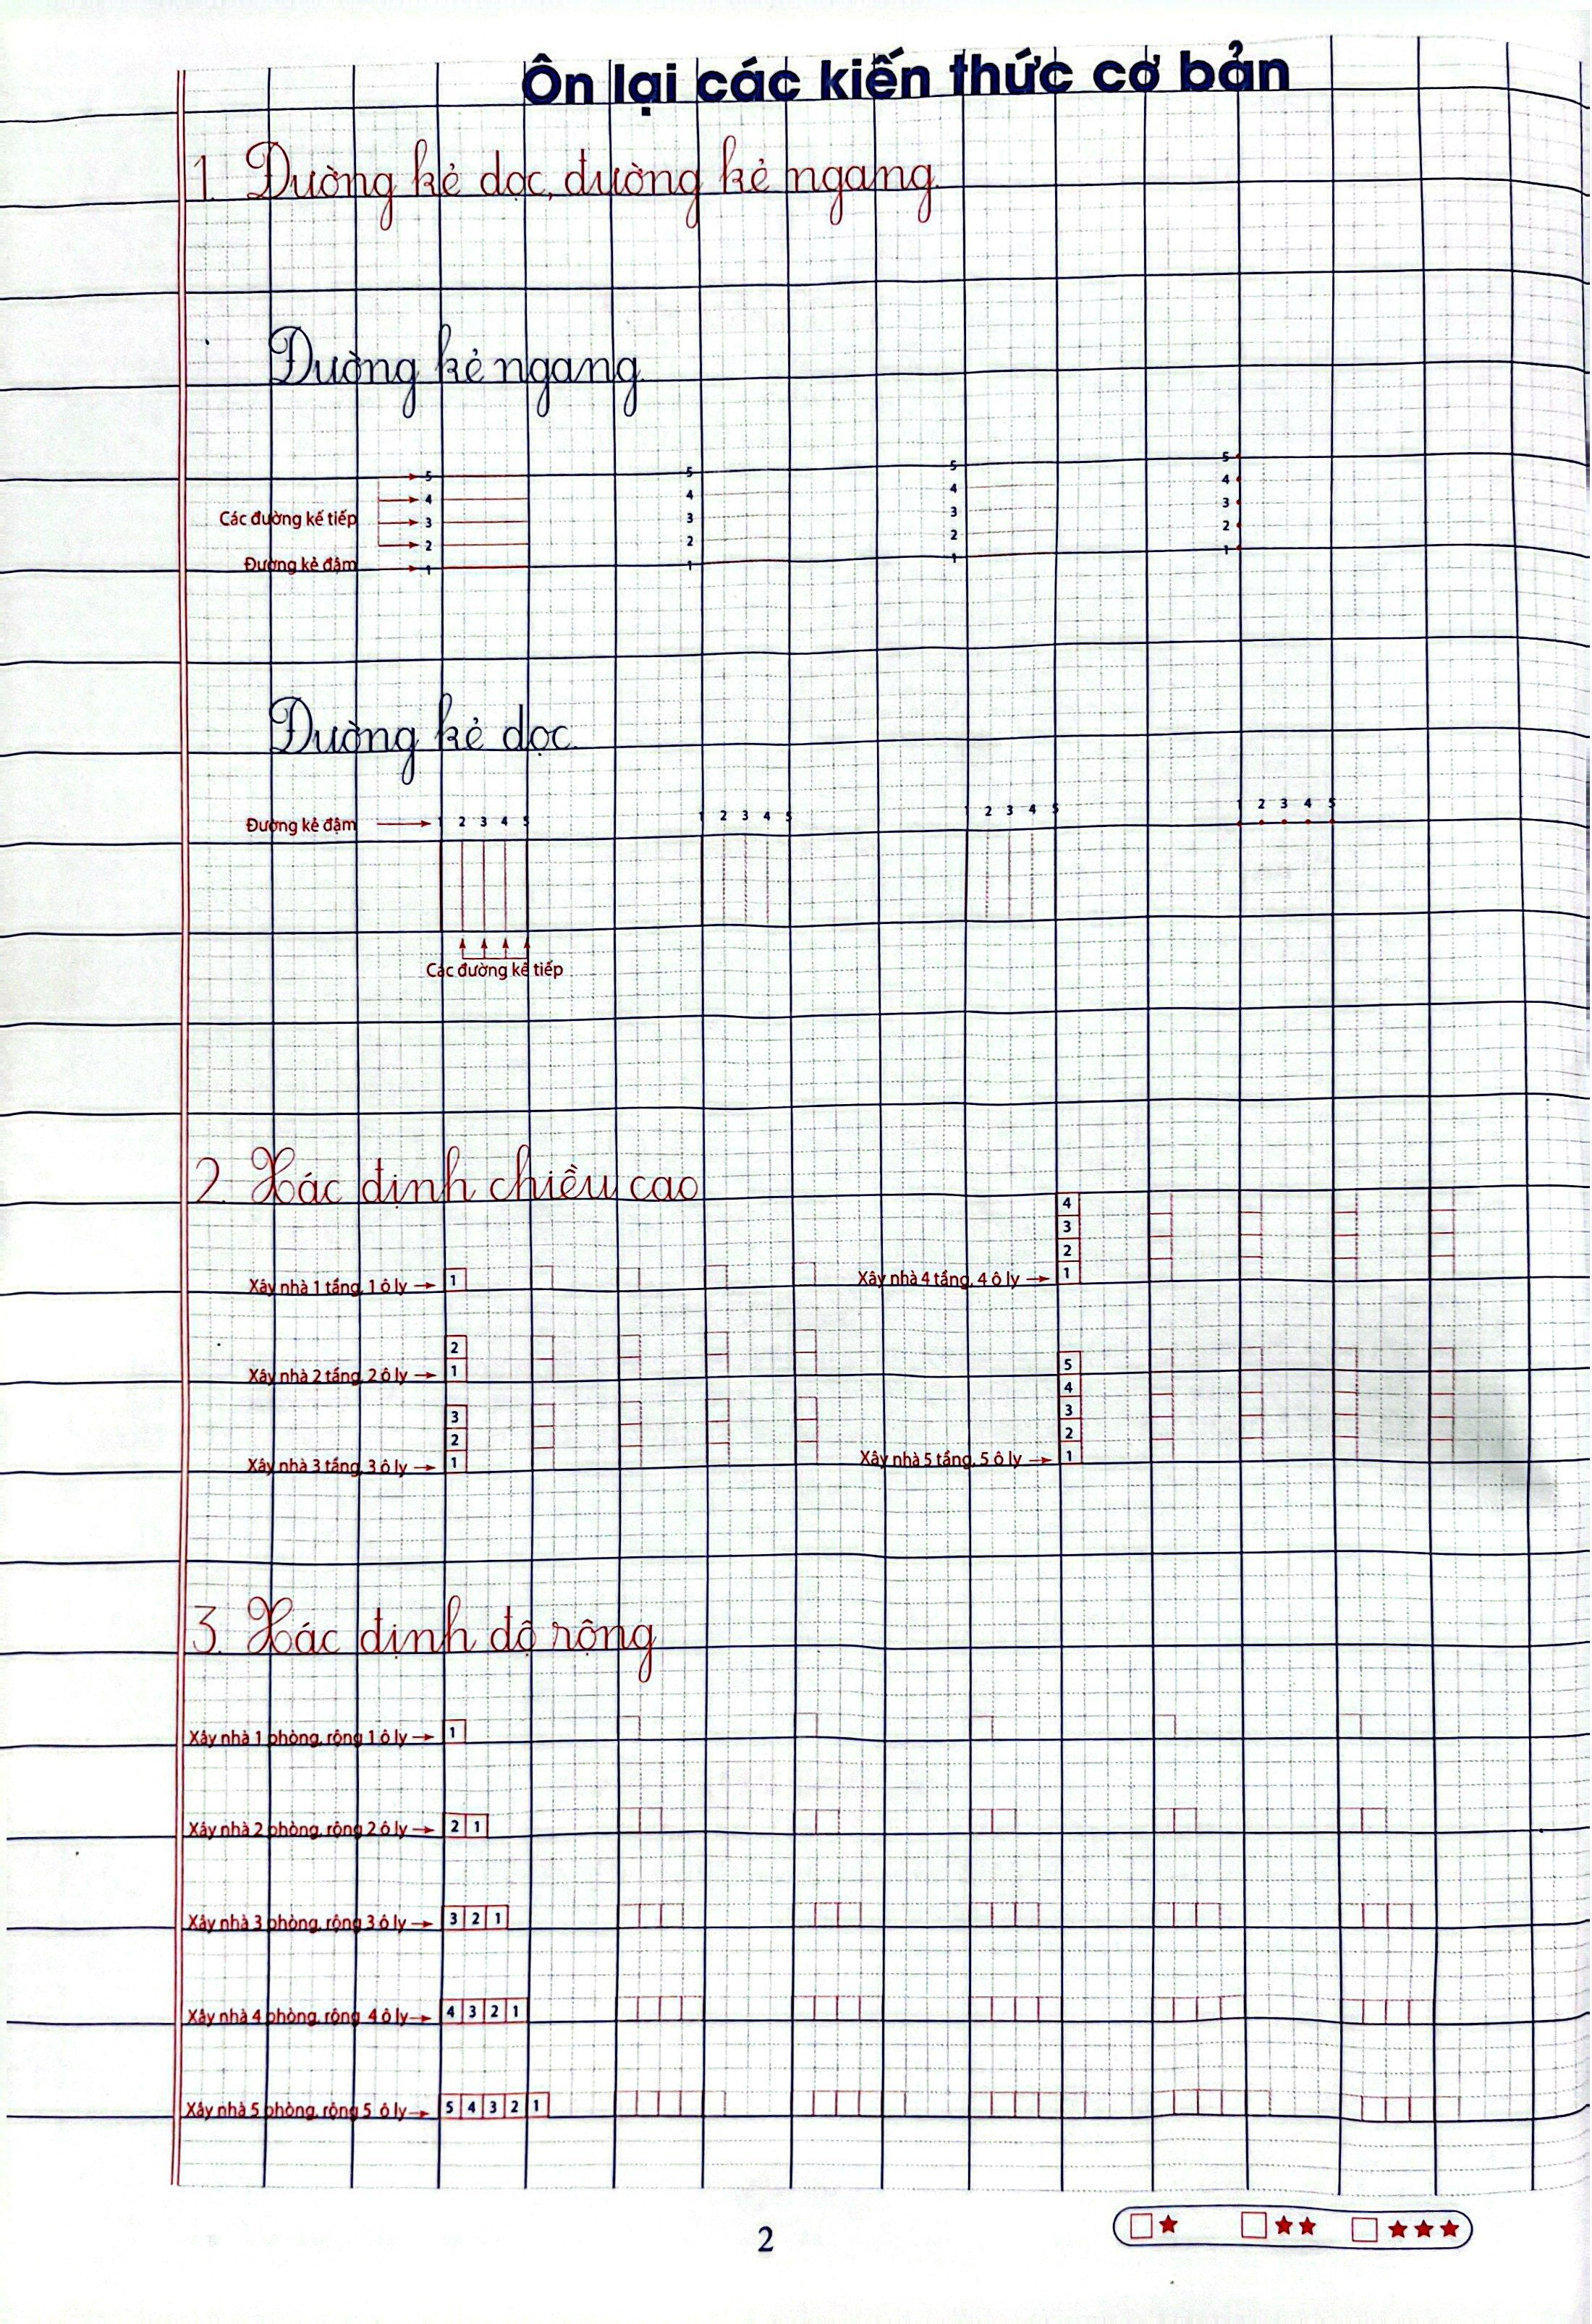 Ôn lại các kiến thức cơ bản
1. Đường kẻ dọc, đường kẻ ngang.
Đường kẻ ngang.
5 5 5 5
4 4 4 4
Các đường kế tiếp 3 3 3 3
2 2 2 2
Đường kẻ đậm 1 1 1 1
Đường kẻ dọc.
Đường kẻ đậm 1 2 3 4 5 1 2 3 4 5 1 2 3 4 5 1 2 3 4 5
Các đường kế tiếp
2. Xác định chiều cao
Xây nhà 1 tầng, 1 ô ly 1
Xây nhà 2 tầng, 2 ô ly 2 1
Xây nhà 3 tầng, 3 ô ly 3 2 1
Xây nhà 4 tầng, 4 ô ly 4 3 2 1
Xây nhà 5 tầng, 5 ô ly 5 4 3 2 1
3. Xác định độ rộng
Xây nhà 1 phòng, rộng 1 ô ly 1
Xây nhà 2 phòng, rộng 2 ô ly 2 1
Xây nhà 3 phòng, rộng 3 ô ly 3 2 1
Xây nhà 4 phòng, rộng 4 ô ly 4 3 2 1
Xây nhà 5 phòng, rộng 5 ô ly 5 4 3 2 1
2